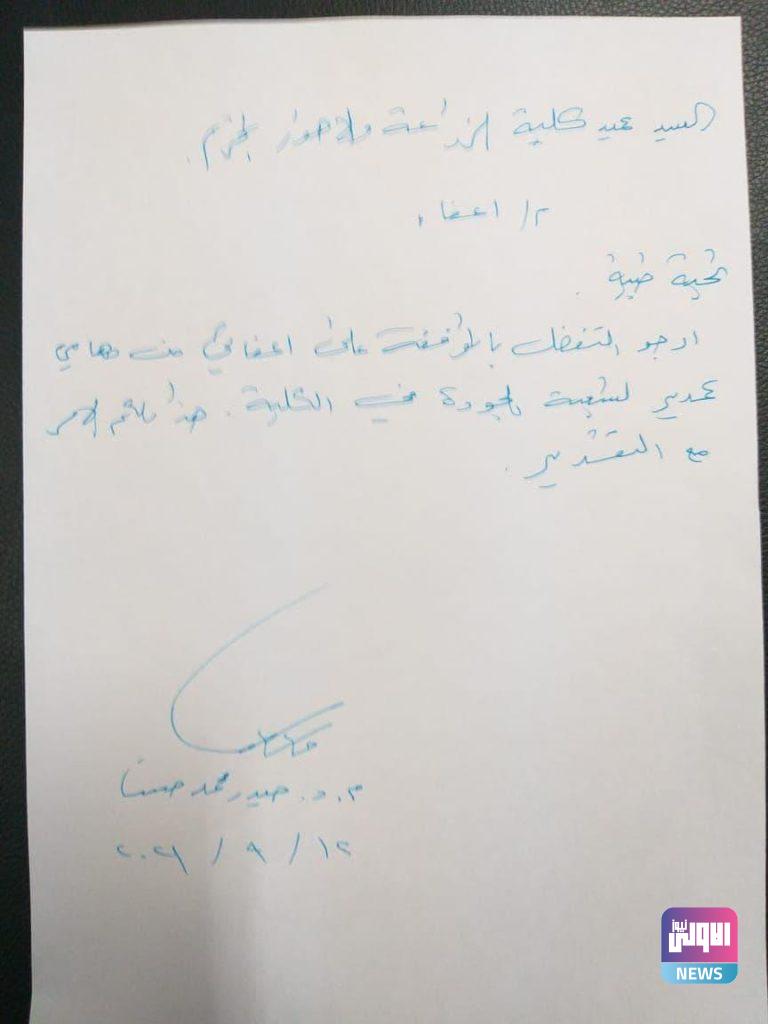 السيد عميد كلية الزراعة والاهوار المحترم.
م/ اعفاء
تحية طيبة.
ارجو التفضل بالموافقة على اعفائي من مهامي
كمدير لشعبة الجودة في الكلية. هذا ولكم الامر
مع التقدير.
م. د. حيدر محمد حسن
١٢ / ٩ / ٢٠٢١
الاولى نيوز
NEWS